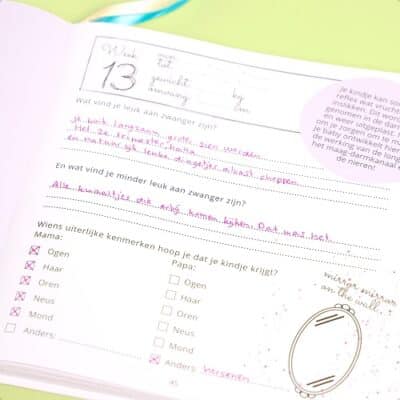 Week
13
tot
gewicht kg
omvang cm
Je kindje kan slik
reflex wat vruchtw
inslikken. Dit word
genomen in de dar
en weer uitgeplast. D
om je zorgen om te ma
Je baby ontwikkelt hier
de werking van de longe
het maag-darmkanaal e
de nieren!
Wat vind je leuk aan zwanger zijn?
Je buik langzaam groter zien worden
Het 2e trimester, haha
en natuurlijk leuke dingetjes alvast shoppen.
En wat vind je minder leuk aan zwanger zijn?
Alle kwaaltjes die erbij komen kijken. Dat was het.
Wiens uiterlijke kenmerken hoop je dat je kindje krijgt?
Mama:
Ogen
Haar
Oren
Neus
Mond
Anders:
Papa:
Ogen
Haar
Oren
Neus
Mond
Anders: hersenen
mirror mirror
on the wall
45